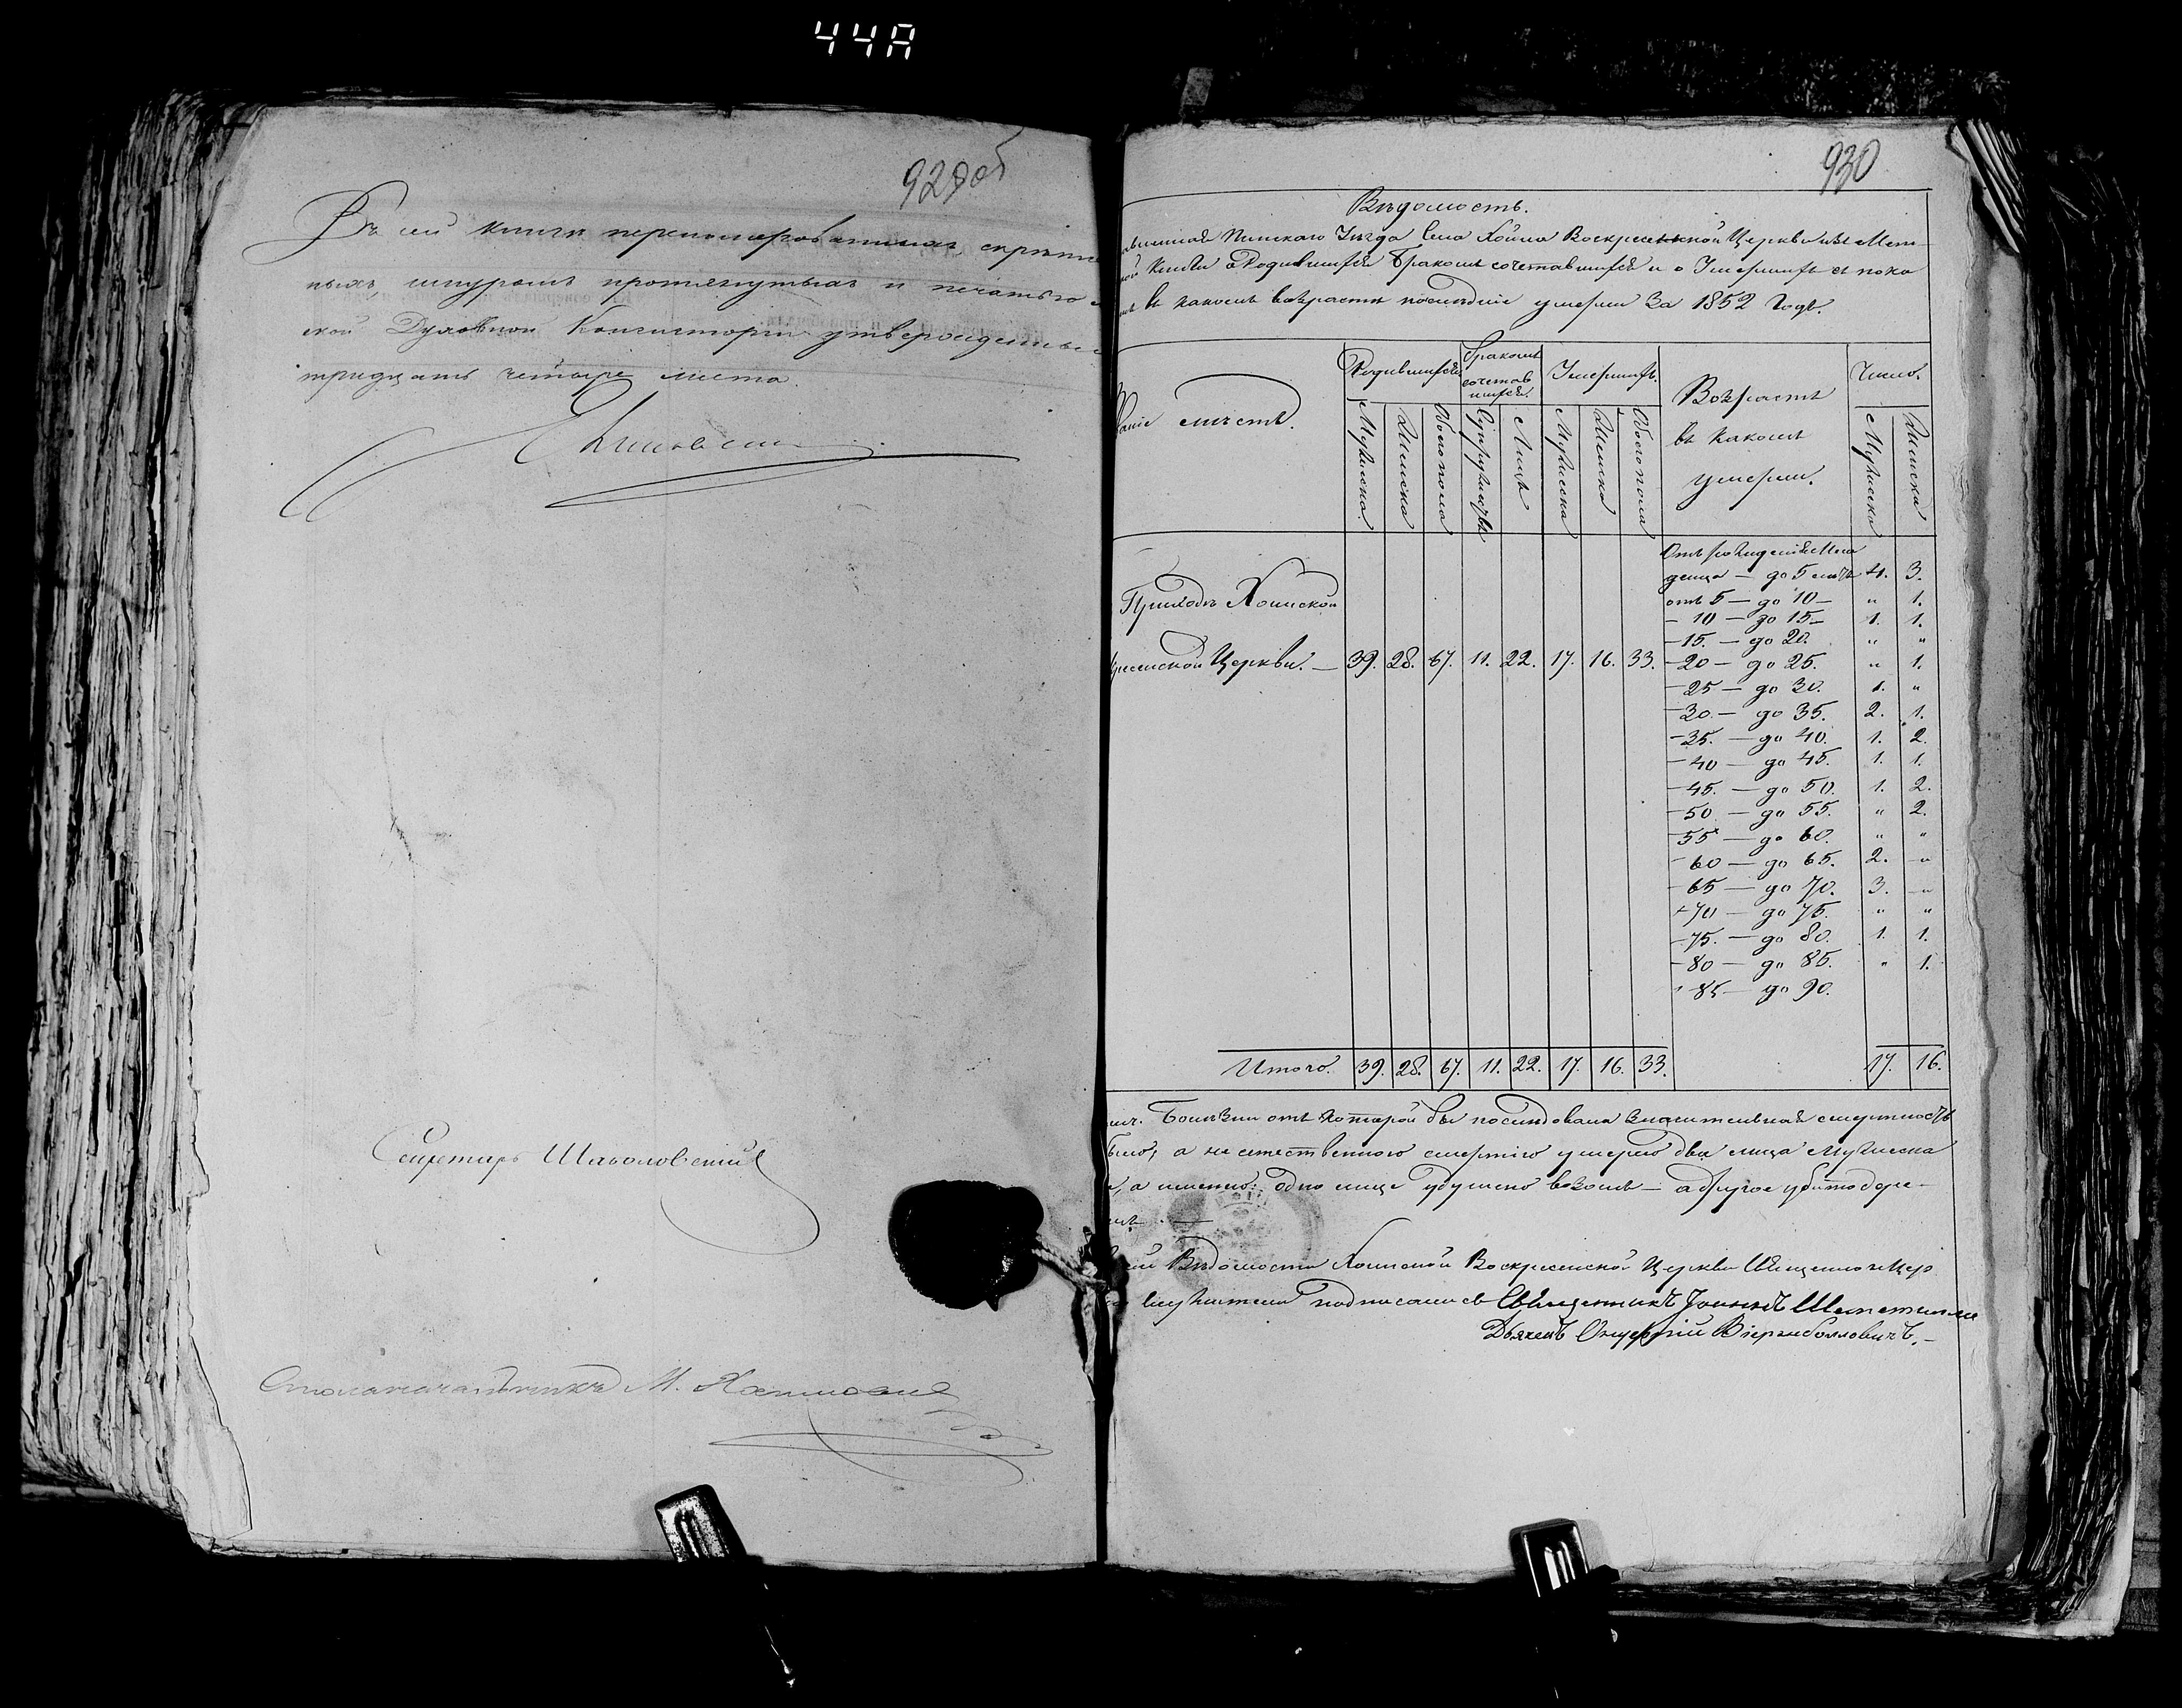 44A
929об
Въ сей книгѣ перенумерованныхъ, скрѣплен
ныхъ, шнуромъ протянутыхъ и печатью
ской Духовной Консисторіи утвержденныхъ
тридцать четыре листа.
Секретарь
Столоначальникъ М.
930
Вѣдомость.
Пинскаго Уѣзда Села Хойна Воскресенской Церкви изъ Мет-
ой Книги о Родившихся Бракомъ сочетавшихся и о Умершихъ съ пока
въ какомъ возрастѣ послѣдніе умерли За 1852 Годъ.
ваніе мѣстъ.
Родившихся.
Бракомъ сочетав шихся.
Умершихъ.
Возрастъ въ какомъ умерли.
Число.
Мужеска
Женска
Обоего пола
Супружествъ
Лицъ
Мужеска
Женска
Обоего пола
Мужеска
Женска
Отъ рожденія Мла
денца — до 5 лѣтъ 4. 3.
отъ 5 — до 10 — „ 1.
— 10 — до 15 — 1. 1.
— 15. — до 20. „ „
Приходъ Хоинской
Церкви. — 39. 28. 67. 11. 22. 17. 16. 33.
— 20 — до 25. „ 1.
— 25 — до 30. 1. „
— 30. — до 35. 2. 1.
— 35. — до 40. 1. 2.
— 40 — до 45. 1. 1.
— 45. — до 50. 1. 2.
— 50 — до 55. „ 2.
55 — до 60. „ „
— 60 — до 65. 2. „
— 65 — до 70. 3. „
70 — до 75. „ „
— 75. — до 80. 1. 1.
— 80 — до 85. „ 1.
85 — до 90.
Итого. 39. 28. 67. 11. 22. 17. 16. 33. 17. 16.
Болѣзни отъ которой бы послѣдовала значительная смертность
было, а не естественною смертію умерло два лица Мужеска
а именно: одно лице удушено возомъ — а другое убито дере-
мъ. —
Вѣдомости Хоинской Воскресенской Церкви Священно и Цер
служители подписались Священникъ Іоаннъ
Дьячекъ